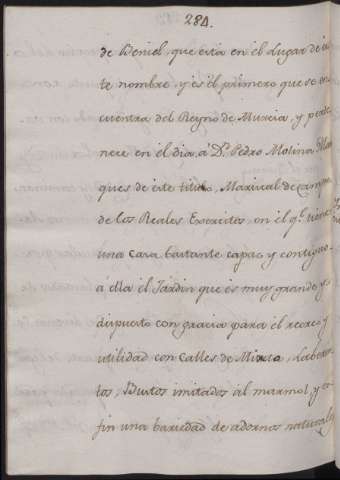 284.
de Beniel, que està en el Lugar de es-
te nombre, y es el primero que se en-
cuentra del Reyno de Murcia, y perte-
nece en el dia à Dn. Pedro Molina Mar-
ques de este titulo, Mariscal de Campo
de los Reales Exercitos, en el qe. tiene
una casa bastante capaz, y contiguo
à ella el Jardin que es muy grande y
dispuesto con gracia para el recreo y
utilidad con Calles de Mirto, Laberin-
tos, Bustos imitados al marmol, y en
fin una bariedad de adornos naturales